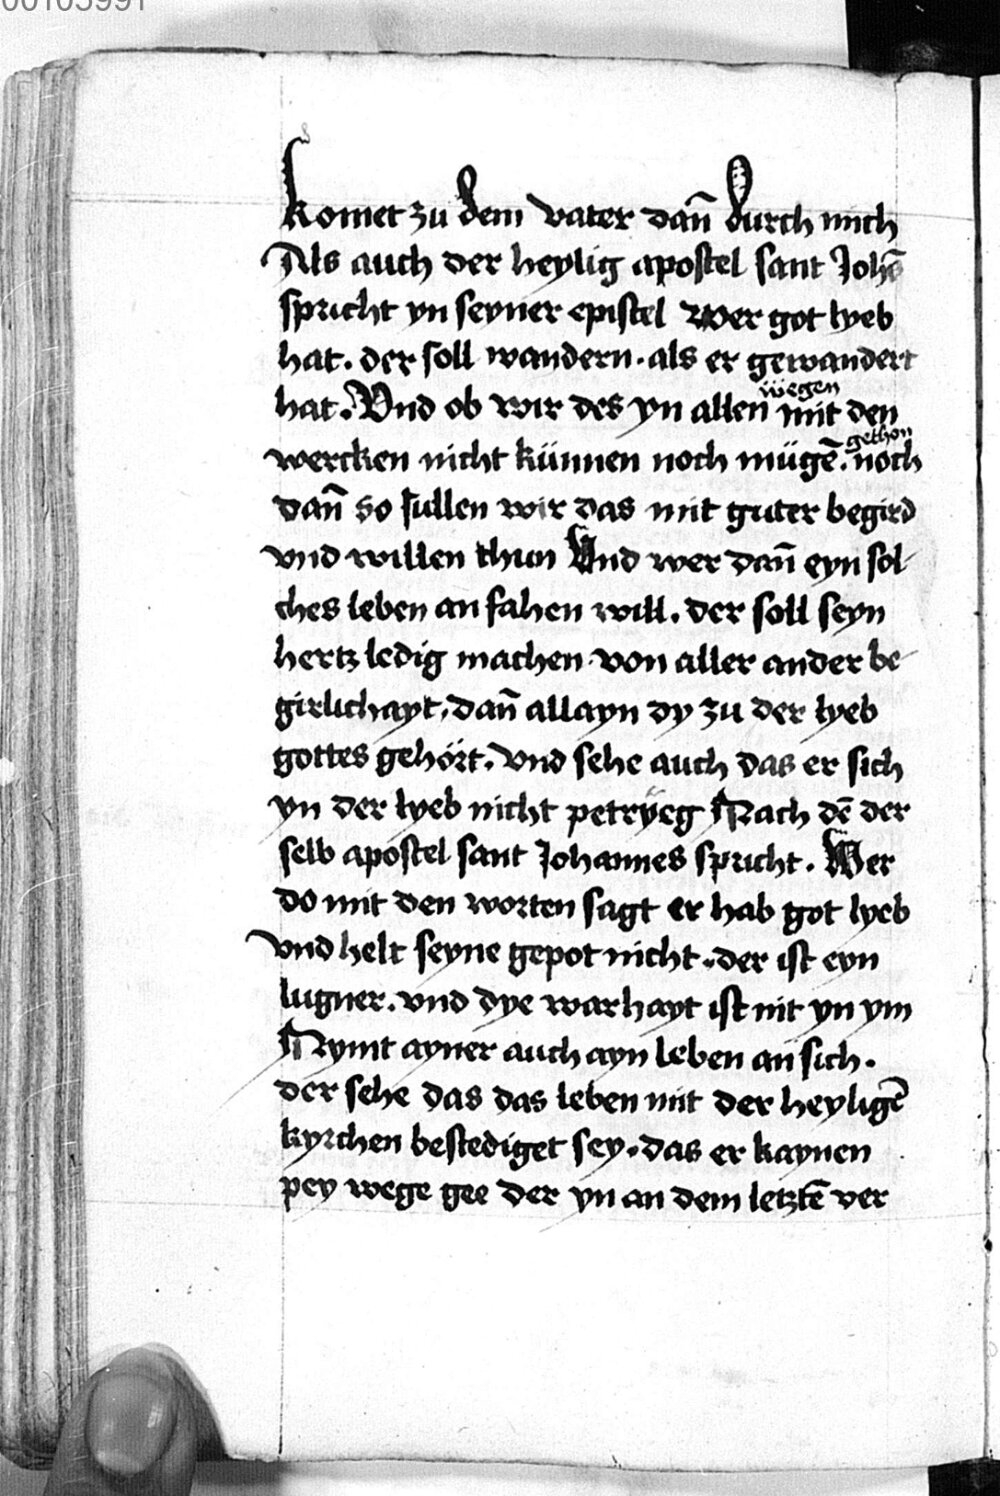 00103991
komet zu dem vater dan̄ durch mich
Als auch der heylig apostel sant Johē
spricht yn seyner epistel wer got lyeb
hat. der soll wandern. als er gewandert
hat. Vnd ob wir des yn allen wegen mit den
wercken nicht künnen noch mügē. gethon noch
dan̄ so sullen wir das mit guter begird
vnd willen thun Vnd wer dan̄ eyn sol-
ches leben an fahen will. der soll seyn
hertz ledig machen von aller ander be-
girlichayt. dan̄ allayn dy zu der lyeb
gottes gehört. vnd sehe auch das er sich
yn der lyeb nicht petryeg Nach dē der
selb apostel sant Johannes spricht. Wer
do mit den worten sagt er hab got lyeb
vnd helt seyne gepot nicht. der ist eyn
lugner. vnd dye warhayt ist nit yn ym
Nymt ayner auch ayn leben an sich.
der sehe das das leben mit der heyligē
kyrchen bestediget sey. das er kaynen
pey wege gee der yn an dem letztē ver